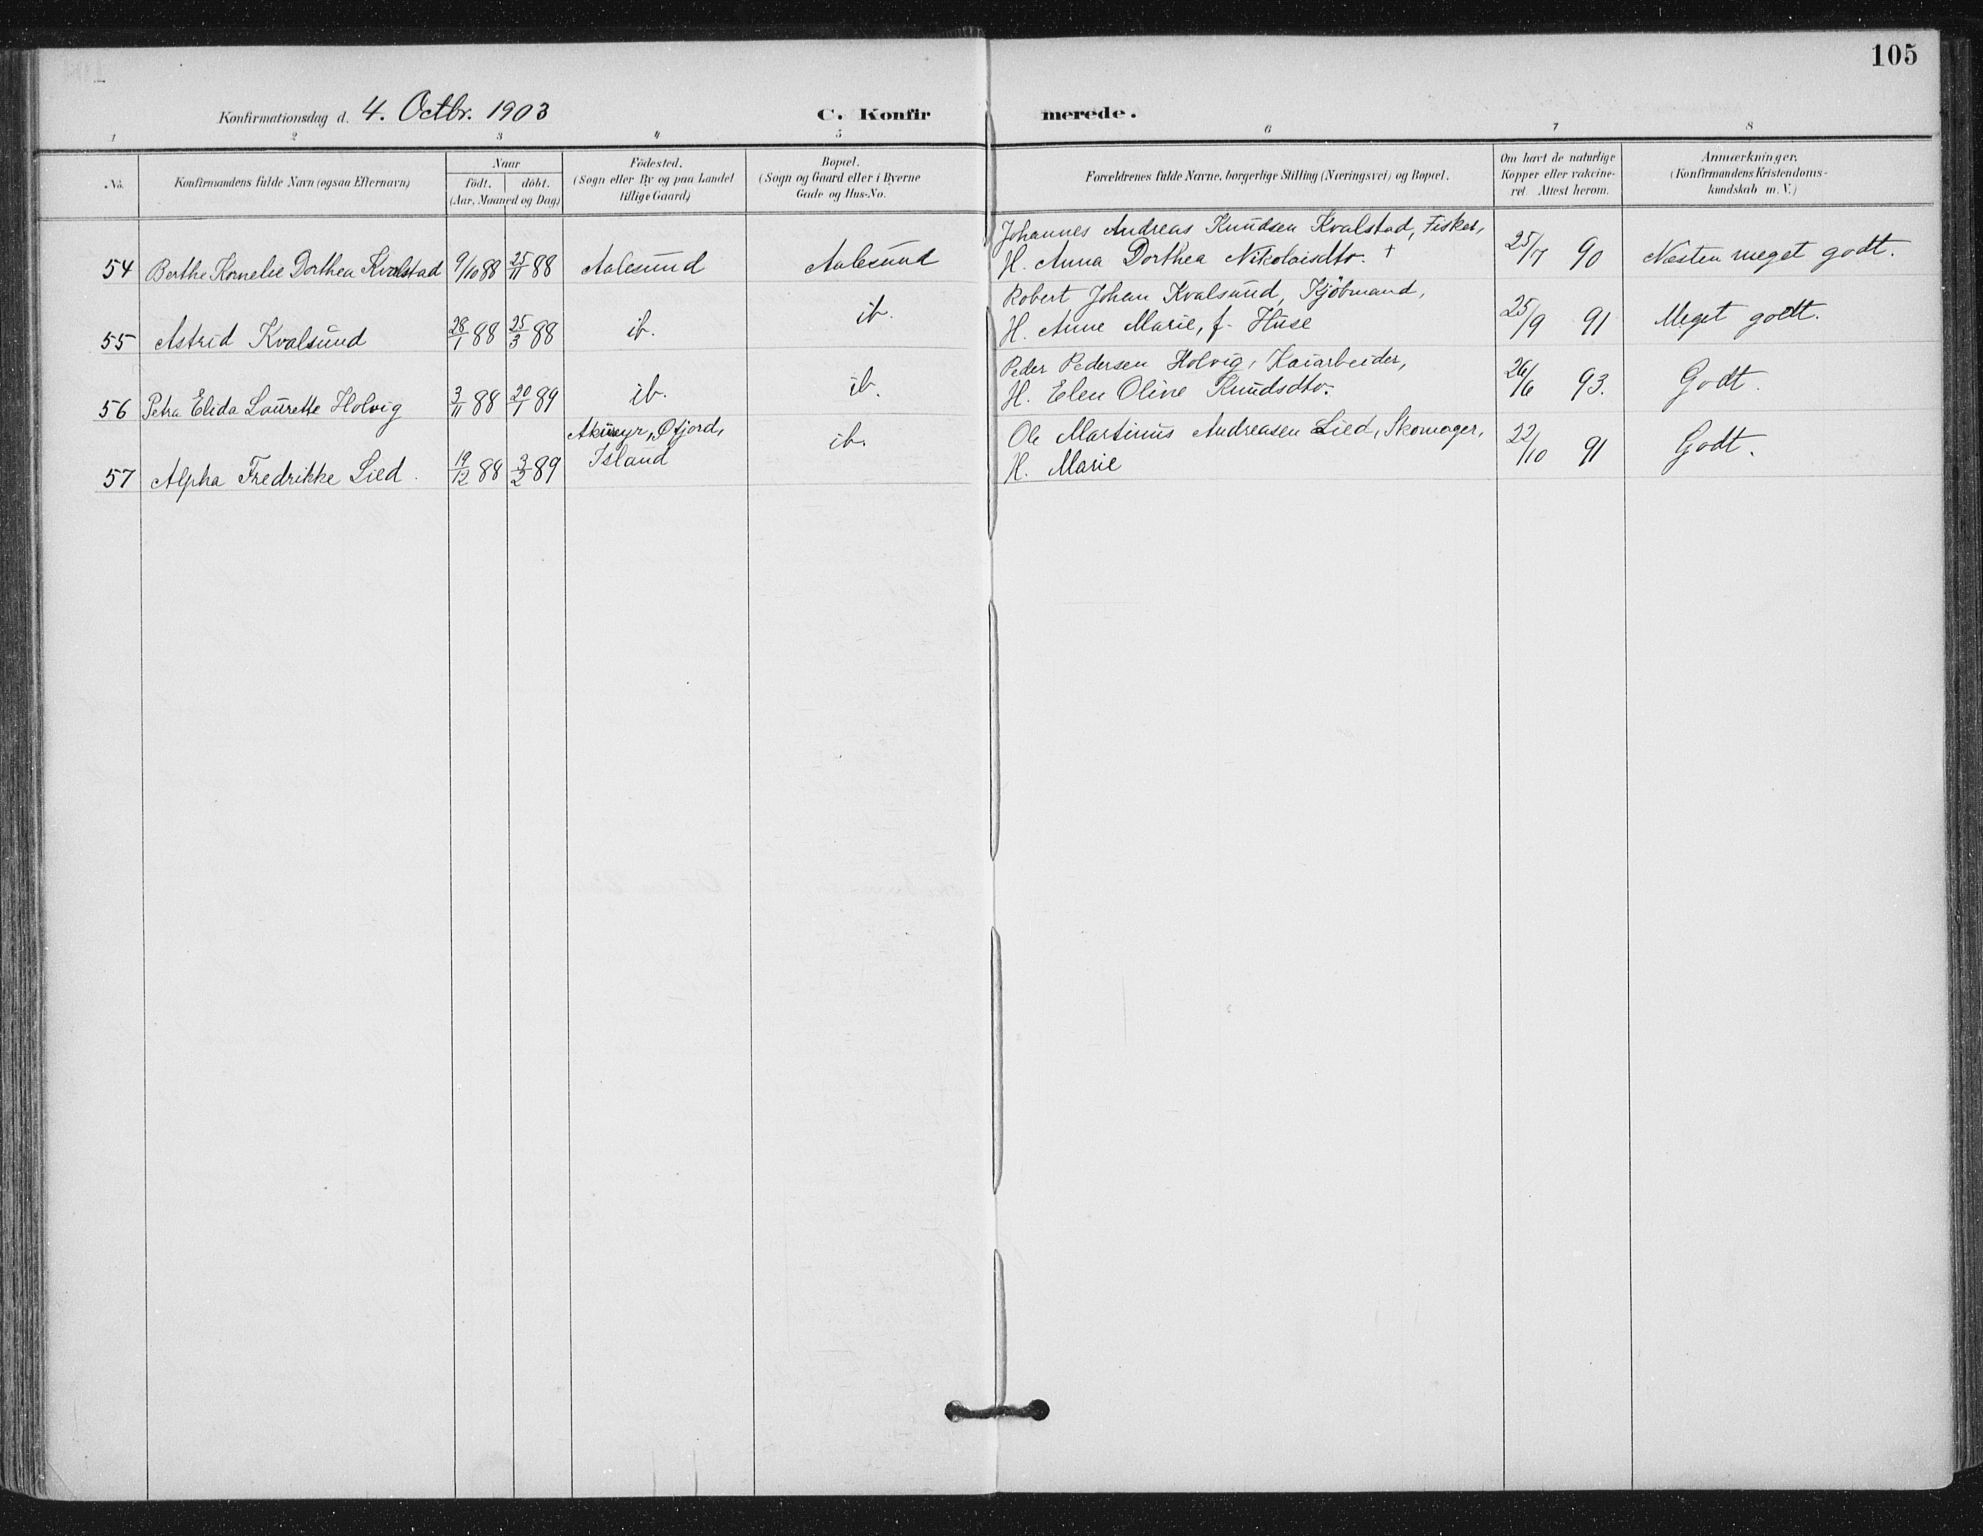 105
Konfirmationsdag d. 4. Octbr. 1903 C. Konfirmerede.
1 2 3 4 5 6 7 8
No. Konfirmandens fulde Navn (ogsaa Efternavn)
Naar
födt. döbt.
(Aar, Maaned og Dag)
Födested.
(Sogn eller By og paa Landet
tillige Gaard)
Bopæl.
(Sogn og Gaard eller i Byerne
Gade og Hus-No.
Forældrenes fulde Navne, borgerlige Stilling (Næringsvei) og Bopæl.
Om havt de naturlige
Kopper eller vakcine-
ret. Attest herom.
Anmærkninger.
(Konfirmandens Kristendoms-
kundskab m. V.)
Johannes Andreas Knudsen Kvalstad, Fisker,
54 Berthe Kornelie Dorthea Kvalstad 9/10 88 25/11 88 Aalesund Aalesund H. Anna Dorthea Nikolaisdtr. † 25/7 90 Næsten meget godt.
Robert Johan Kvalsund, Kjöbmand,
55 Astrid Kvalsund 28/1 88 25/3 88 ib. ib. H. Anne Marie, f. Huse 25/9 91 Meget godt.
Peder Pedersen Holvig, Kaiarbeider,
56 Petra Elida Laurette Holvig 3/11 88 20/1 89 ib. ib. H. Elen Oline Knudsdtr. 26/6 93. Godt.
Akureyr, Øfjord, Ole Martinus Andreasen Lied, Skomager,
57 Alpha Fredrikke Lied. 19/12 88 3/2 89 Island ib. H. Marie 22/10 91 Godt.